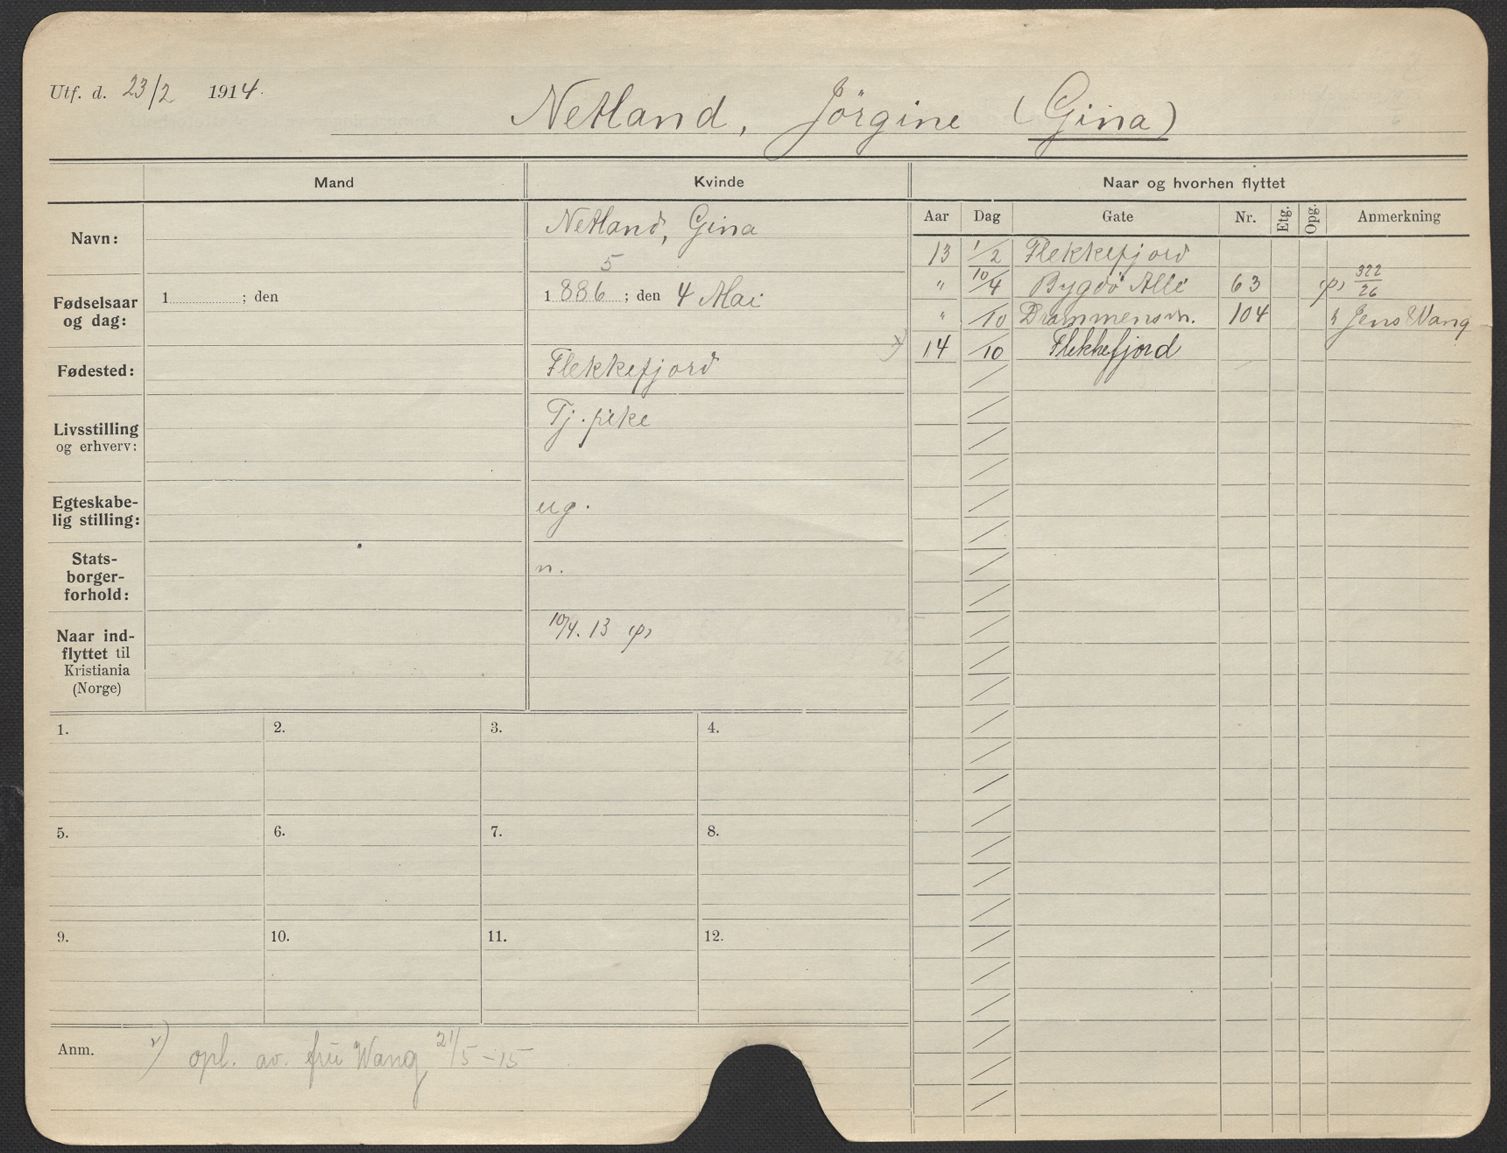 Utf. d. 23/2 1914.
Netland, Jörgine (Gina)
Mand
Kvinde
Naar og hvorhen flyttet
Aar Dag Gate Nr. Etg. Opg. Anmerkning
Navn:
Netland, Gina
5
Fødselsaar
og dag:
1 ; den
1886 ; den 4 Mai
Fødested:
Flekkefjord
Livsstilling
og erhverv:
Tj. pike
Egteskabe-
lig stilling:
ug.
Stats-
borger-
forhold:
n.
Naar ind-
flyttet til
Kristiania
(Norge)
10/4. 13
13 1/2 Flekkefjord
" 10/4 Bygdö Alle 63 322/26
" /10 Drammensvn. 104 Jens Wang
14 /10 Flekkefjord
1. 2. 3. 4.
5. 6. 7. 8.
9. 10. 11. 12.
Anm.
opl. av. frü Wang 21/5-15